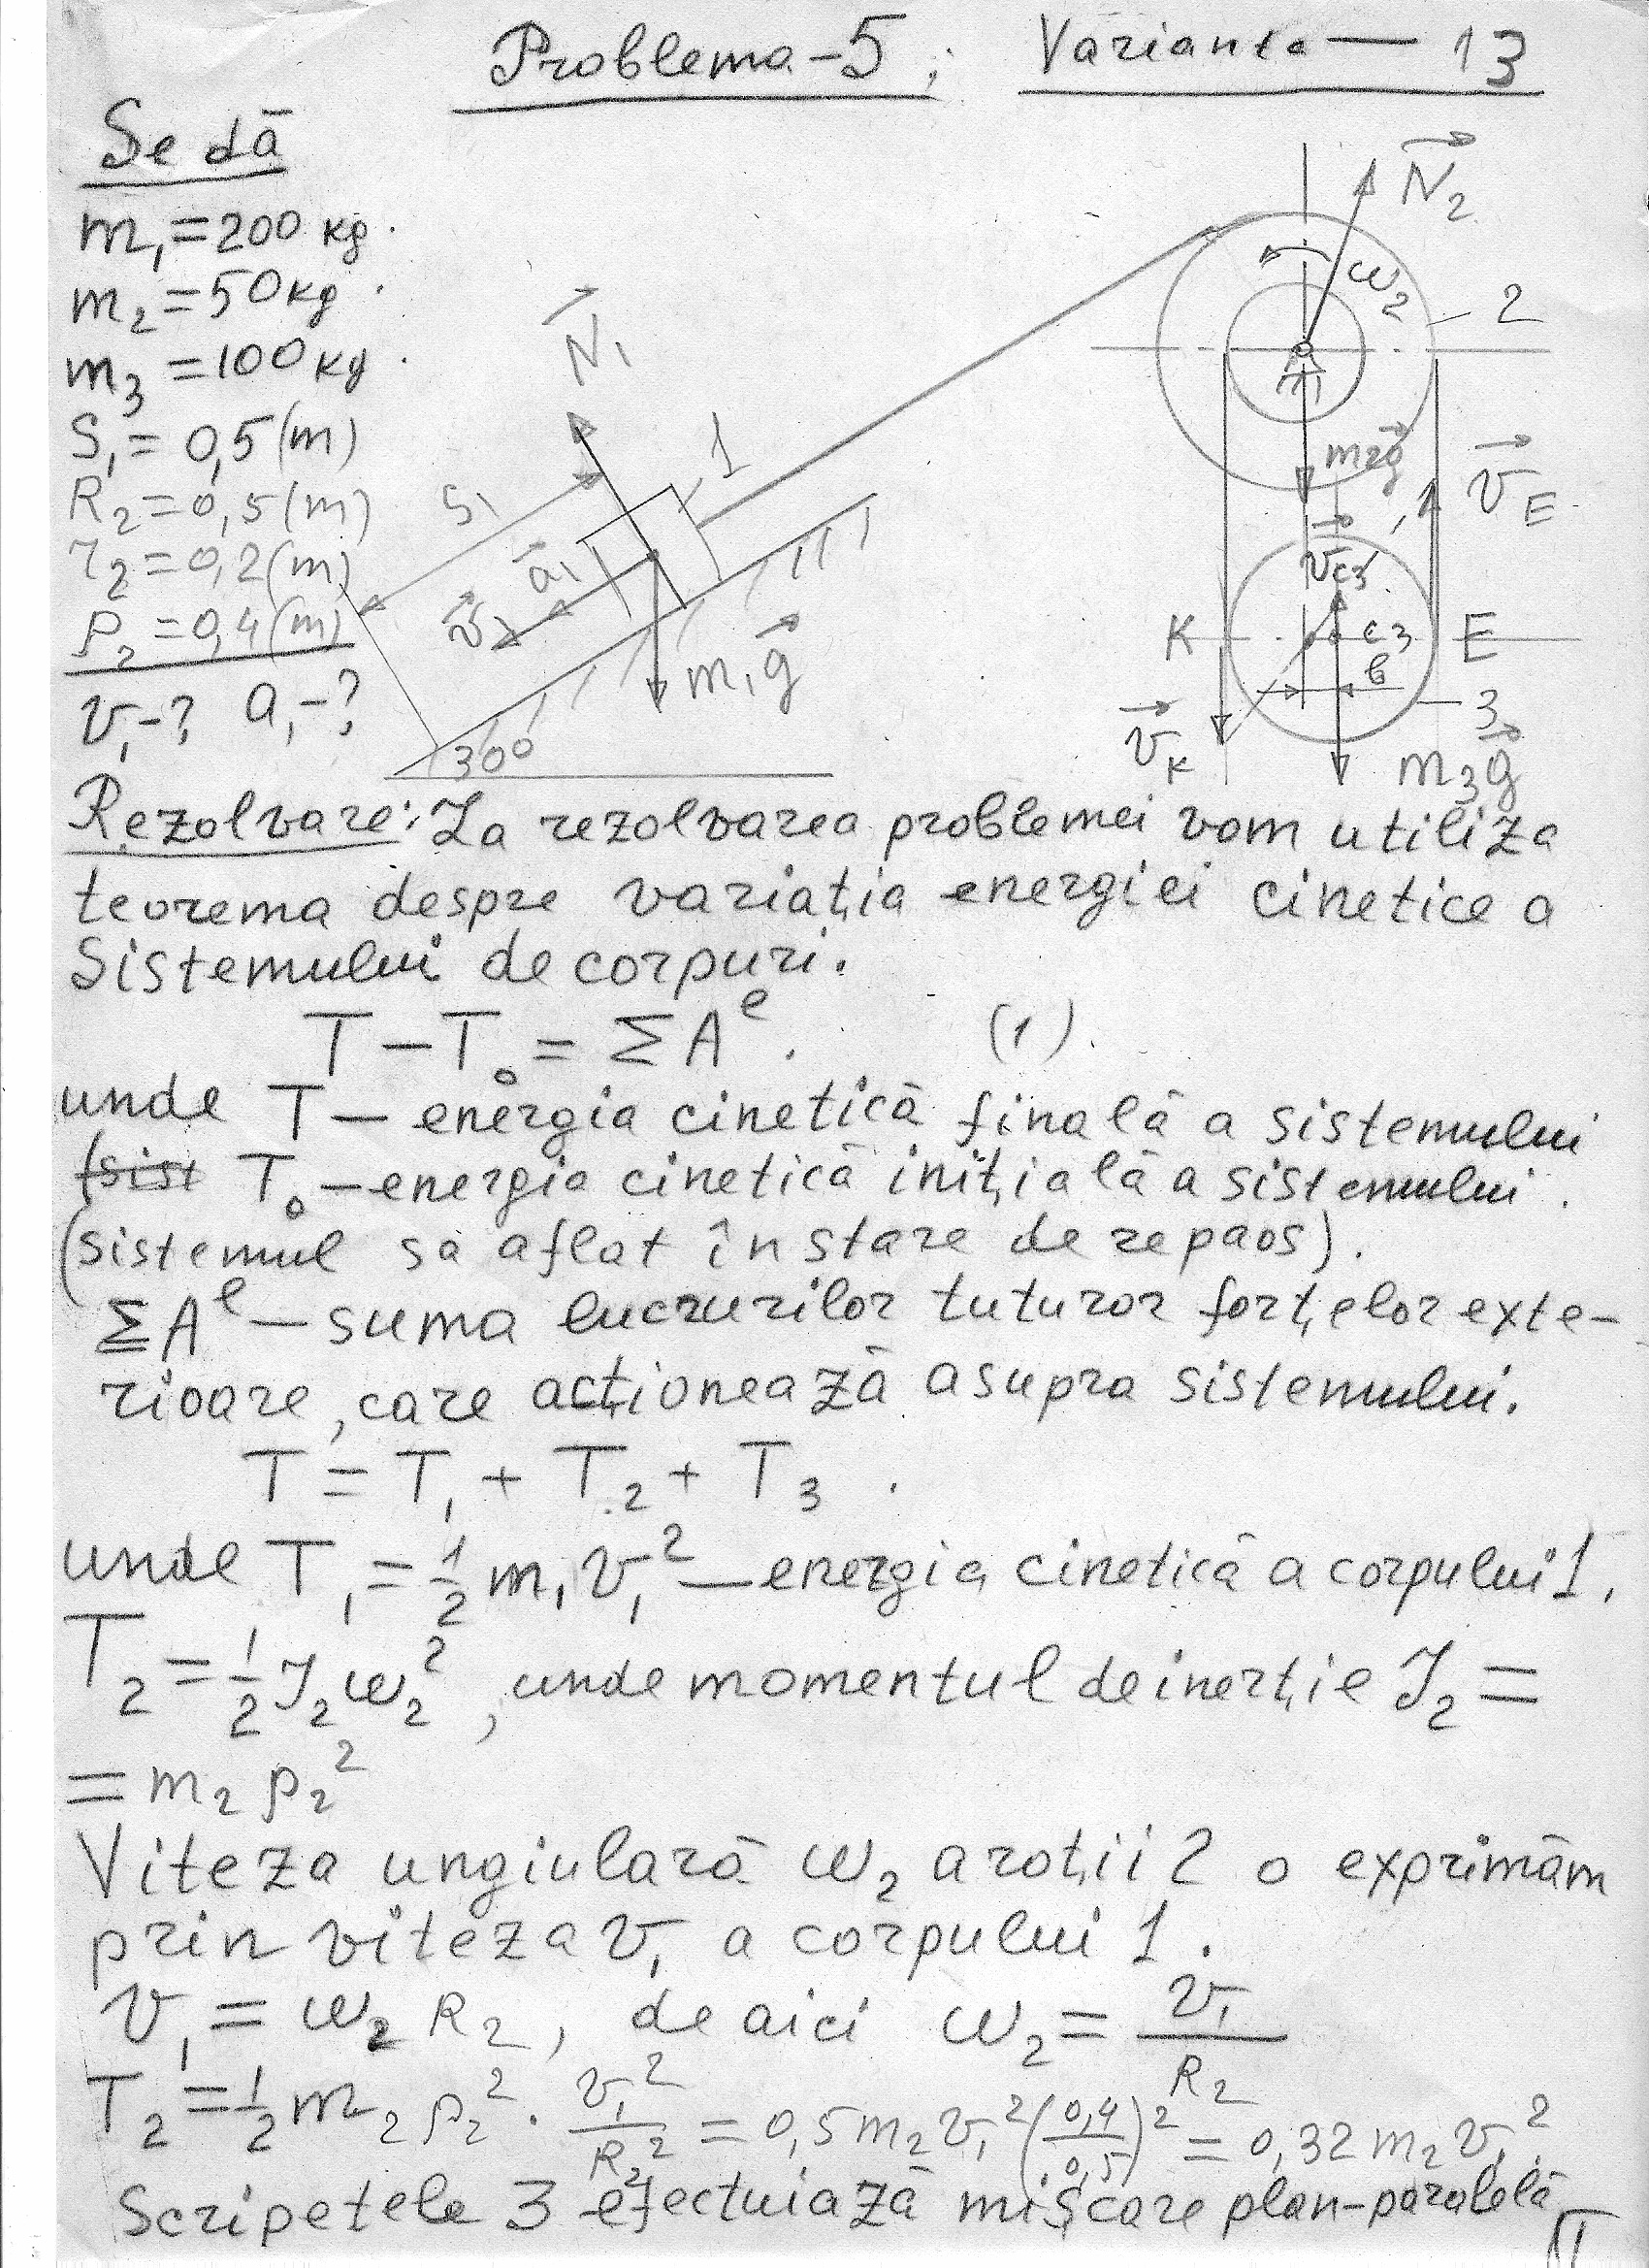 Problema-5; Varianta — 13
Se dă
m₁=200 кg.
m₂=50кg.
m₃=100кg.
S₁= 0,5(m)
R₂=0,5(m)
r₂=0,2(m)
ρ₂=0,4(m)
v₁-? a₁-?
N₁
S₁
1
a₁
v₁
m₁g
30⁰
N₂
ω₂
2
m₂g
v_E
v_C3
K
C3
E
в
3
v_K
m₃g
Rezolvare: La rezolvarea problemei vom utiliza
teorema despre variația energiei cinetice a
Sistemului de corpuri.
T – T₀ = ΣAᵉ. (1).
unde T — energia cinetică finală a sistemului
(sist T₀ — energia cinetică inițială a sistemului.
(sistemul sa aflat în stare de repaos).
ΣAᵉ — suma lucrurilor tuturor forțelor exte-
rioare, care acționează asupra sistemului.
T = T₁ + T₂ + T₃.
unde T₁ = 1/2 m₁v₁² — energia cinetică a corpului 1.
T₂ = 1/2 J₂ω₂², unde momentul de inerție J₂ =
= m₂ρ₂²
Viteza ungiulară ω₂ a roții 2 o exprimăm
prin viteza v₁ a corpului 1.
v₁ = ω₂R₂, de aici ω₂ = v₁/R₂
T₂ = 1/2 m₂ρ₂² · v₁²/R₂² = 0,5m₂v₁²(0,4/0,5)² = 0,32m₂v₁².
Scripetele 3 efectuiază mișcare plan-paralelă